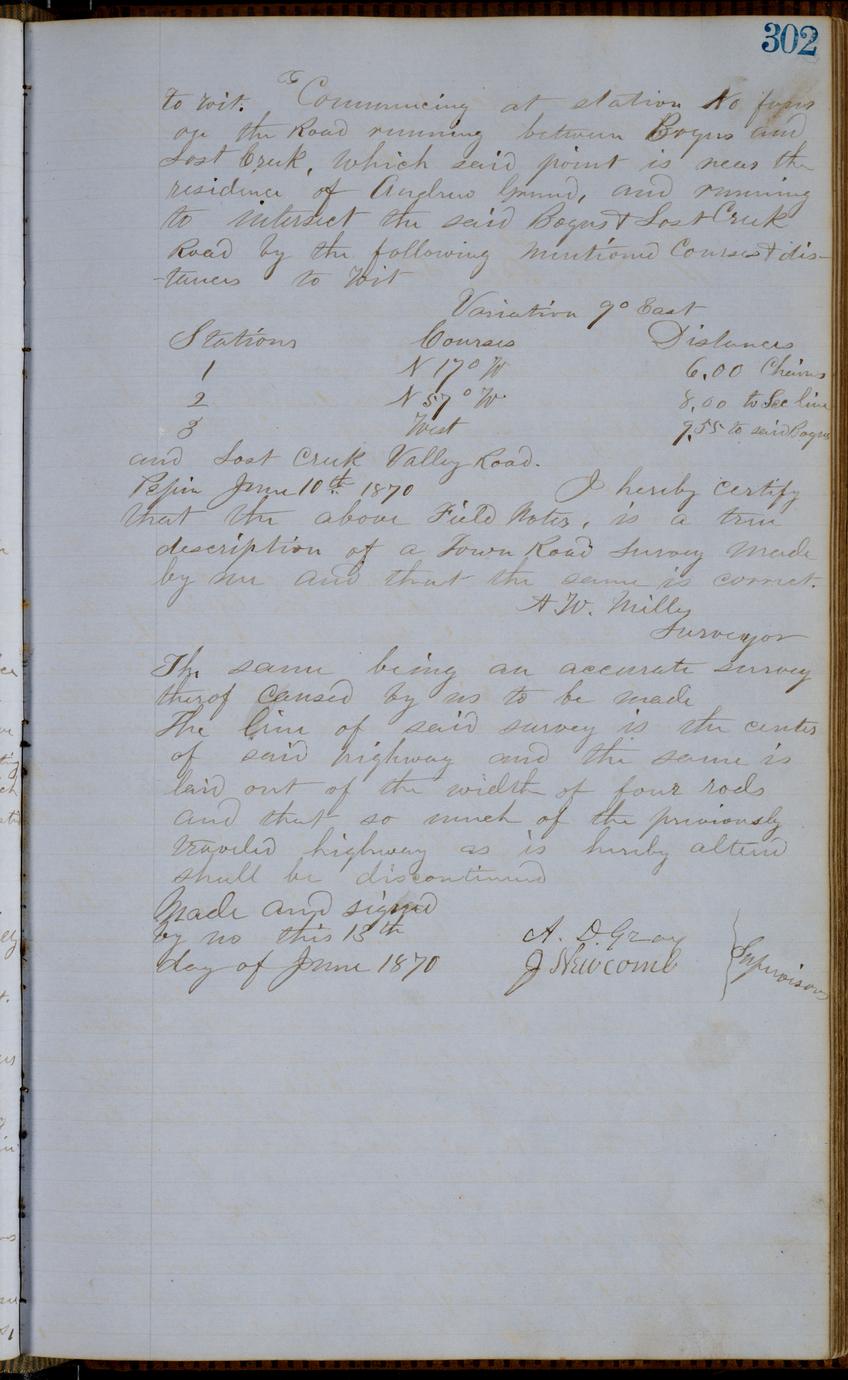 302
to wit. Commencing at station No four
on the Road running between Bogus and
Lost Creek, which said point is near the
residence of Andrew and running
to intersect the said Bogus & Lost Creek
Road by the following mentioned Courses & dis-
-tances to wit
Variation 9° East
Stations Courses Distances
1 N 17° W 6.00 Chains
2 N 57° W 8.00 to Sec line
3 West 9.55 to said Bogus
and Lost Creek Valley Road.
Pepin June 10th 1870 I hereby certify
that the above Field Notes, is a true
description of a Town Road Survey made
by me and that the same is correct.
A W. Miller
Surveyor
The same being an accurate survey
therof caused by us to be made
The line of said survey is the center
of said highway and the same is
laid out of the width of four rods
and that so much of the previously
traveled highway as is hereby altered
shall be discontinued
Made and signed
by us this 13th A. D. Gray
day of June 1870 J Newcomb
Supervisors